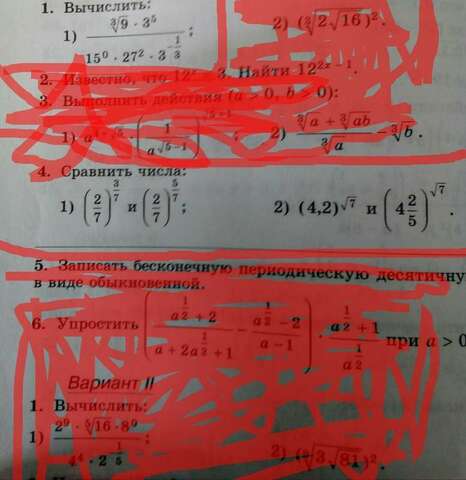 1. Вычислить:
1) ∛9 · 3⁵ / 15⁰ · 27² · 3^(-1/3) ; 2) (∛(2√16))².
2. Известно, что 12ˣ = 3. Найти 12²ˣ⁻¹.
3. Выполнить действия (a > 0, b > 0):
1) (1/a^(√5−1))^(√5+1) ; 2) (∛a + ∛(ab))/∛a − ∛b.
4. Сравнить числа:
1) (2/7)^(3/7) и (2/7)^(5/7); 2) (4,2)^√7 и (4 2/5)^√7.
5. Записать бесконечную периодическую десятичну
в виде обыкновенной.
6. Упростить ((a^(1/2) + 2)/(a + 2a^(1/2) + 1) − (a^(1/2) − 2)/(a − 1)) · (a^(1/2) + 1)/a^(1/2) при a > 0
Вариант II
1. Вычислить:
1) 2⁹ · ⁵√16 · 8⁰ / 4⁴ · 2^(-1/5) ; 2) (3√81)².